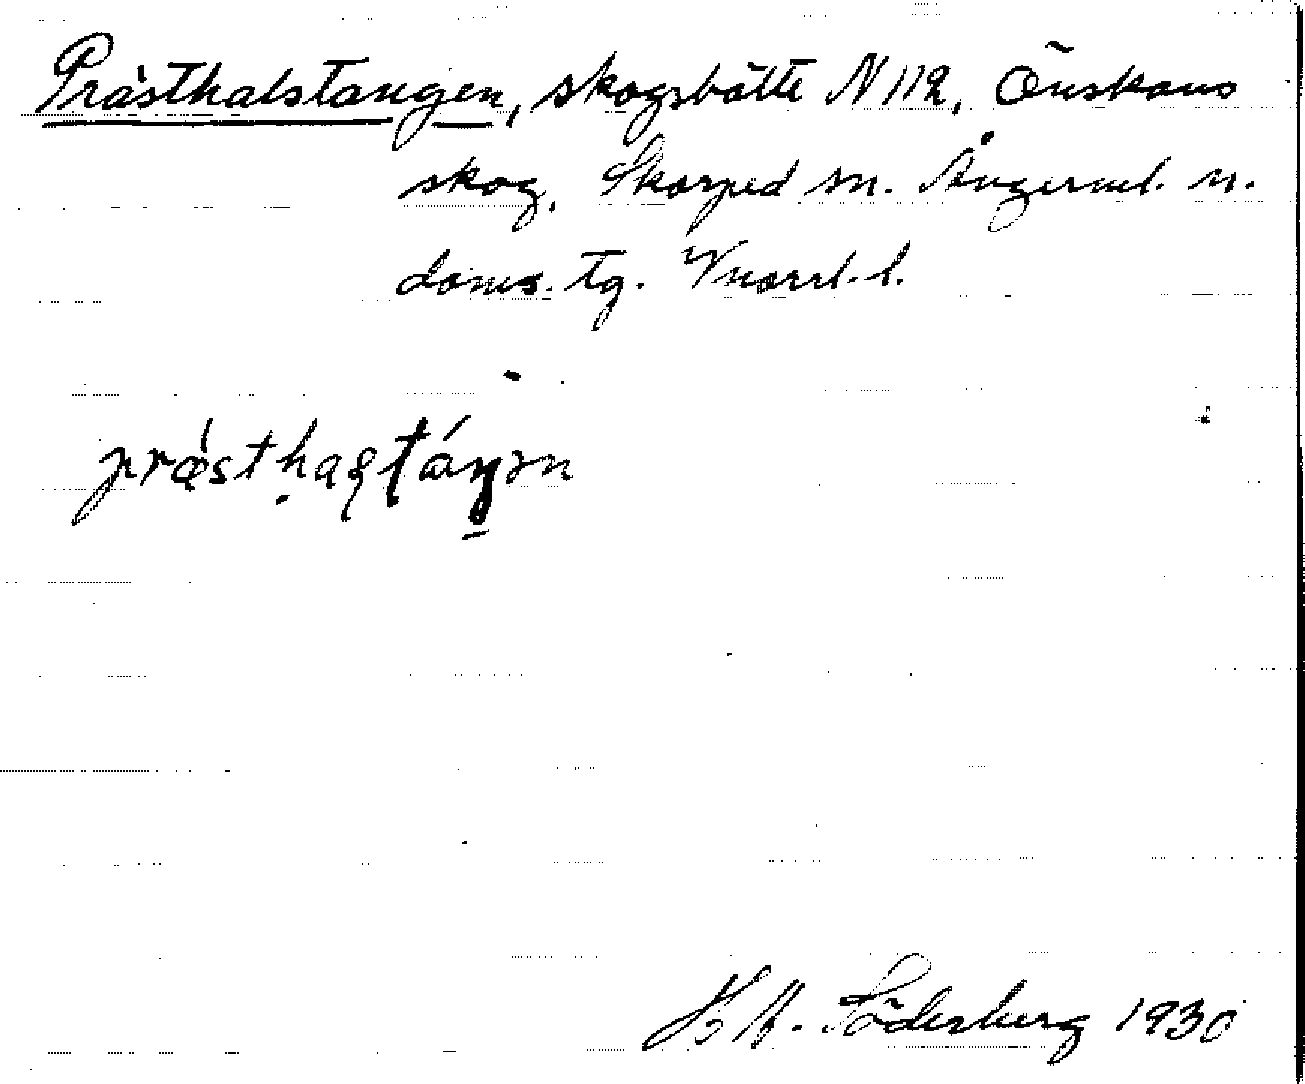 Prästhalstangen, skogsbötte N 112, Önskans
skog, Skorped sn. Ångerml. n.
doms. tg. Vnorrl. l.
prästhaʂtáŋən
K H. Söderberg 1930